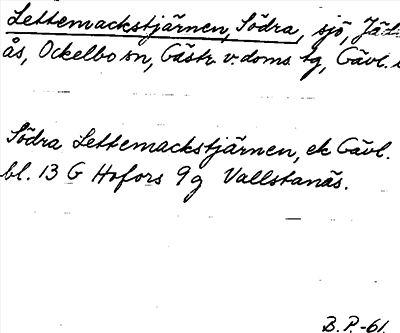 Lettemackstjärnen, Södra, sjö, Jäd
ås, Ockelbo sn, Gästr. v. doms tg, Gävl.
Södra Lettemackstjärnen, ek Gävl.
bl. 13 G Hofors 9g Vallstanäs.
B.P.-61.